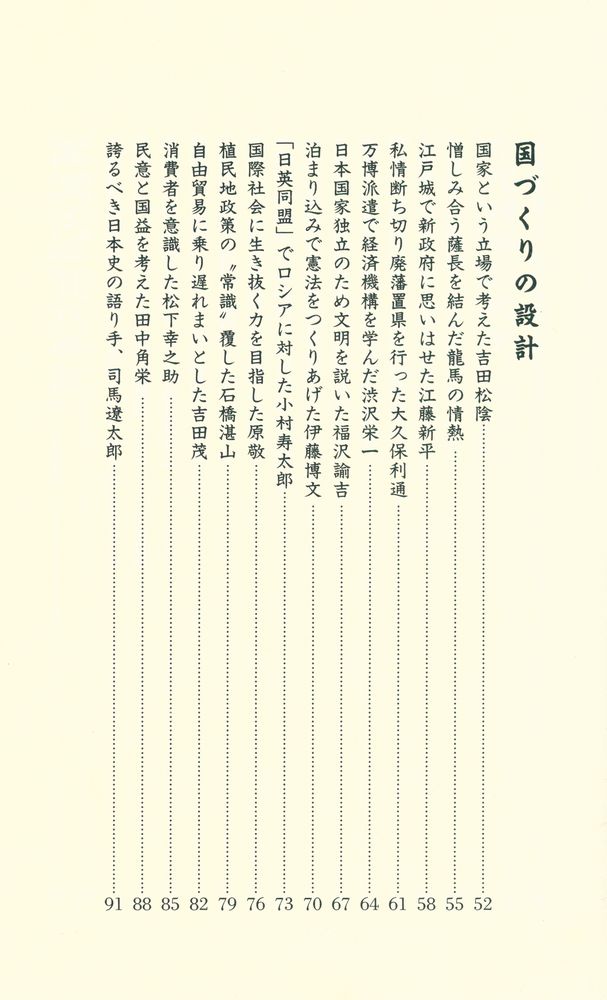 国づくりの設計
国家という立場で考えた吉田松陰……52
憎しみ合う薩長を結んだ龍馬の情熱……55
江戸城で新政府に思いはせた江藤新平……58
私情断ち切り廃藩置県を行った大久保利通……61
万博派遣で経済機構を学んだ渋沢栄一……64
日本国家独立のため文明を説いた福沢諭吉……67
泊まり込みで憲法をつくりあげた伊藤博文……70
「日英同盟」でロシアに対した小村寿太郎……73
国際社会に生き抜く力を目指した原敬……76
植民地政策の〝常識〟覆した石橋湛山……79
自由貿易に乗り遅れまいとした吉田茂……82
消費者を意識した松下幸之助……85
民意と国益を考えた田中角栄……88
誇るべき日本史の語り手、司馬遼太郎……91